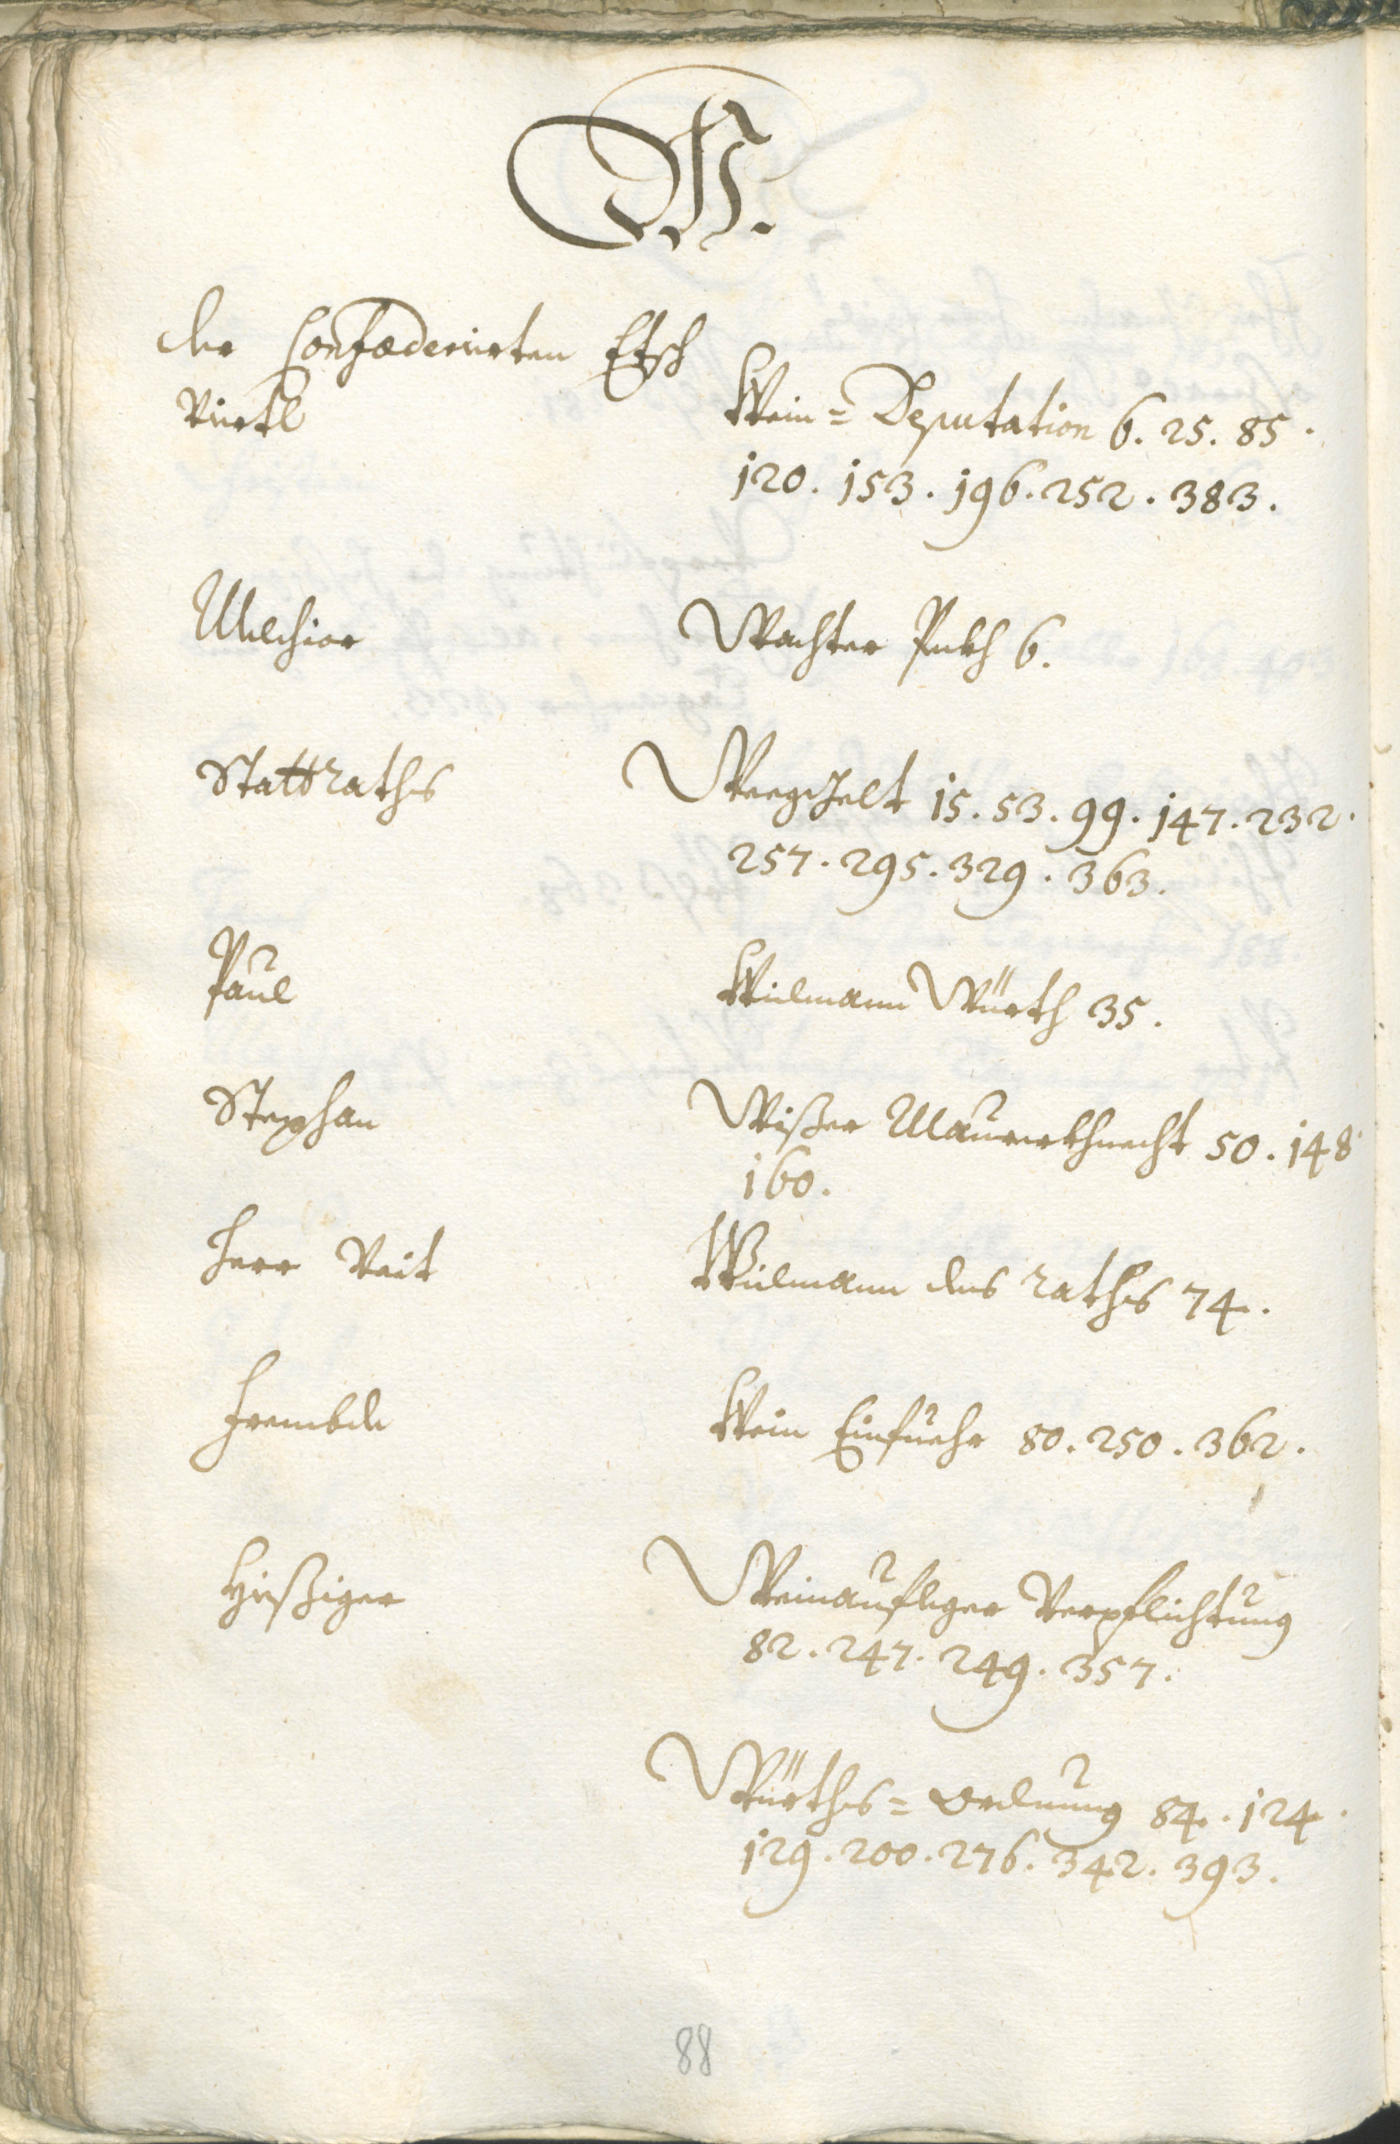 W.
der Confœderierten Etsch
Viertl
Wein=Deputation 6. 25. 85.
120. 153. 196. 252. 383.
Melchior
Wachter Pekh 6.
Stattraths
Weeggelt 15. 53. 99. 147. 232.
257. 295. 329. 363.
Paul
Widmann Würth 35.
Stephan
Wißer Maurerkhnecht 50. 148
160.
Herr Veit
Widmann des raths 74.
Frembde
Wein Einfuehr 80. 250. 362.
Hießiger
Weinaufleger Verpflichtung
82. 247. 249. 357.
Würths=ordnung 84. 124.
129. 200. 276. 342. 393.
88